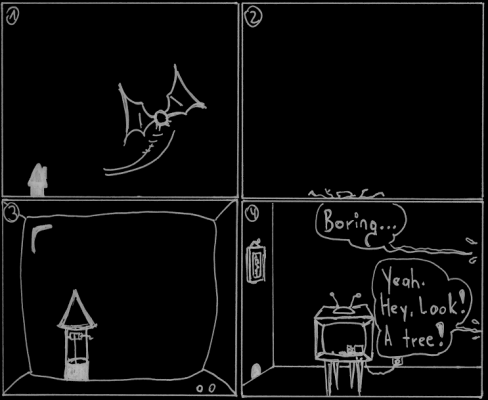 1
2
3
4
Boring...
Yeah.
Hey, Look!
A tree!